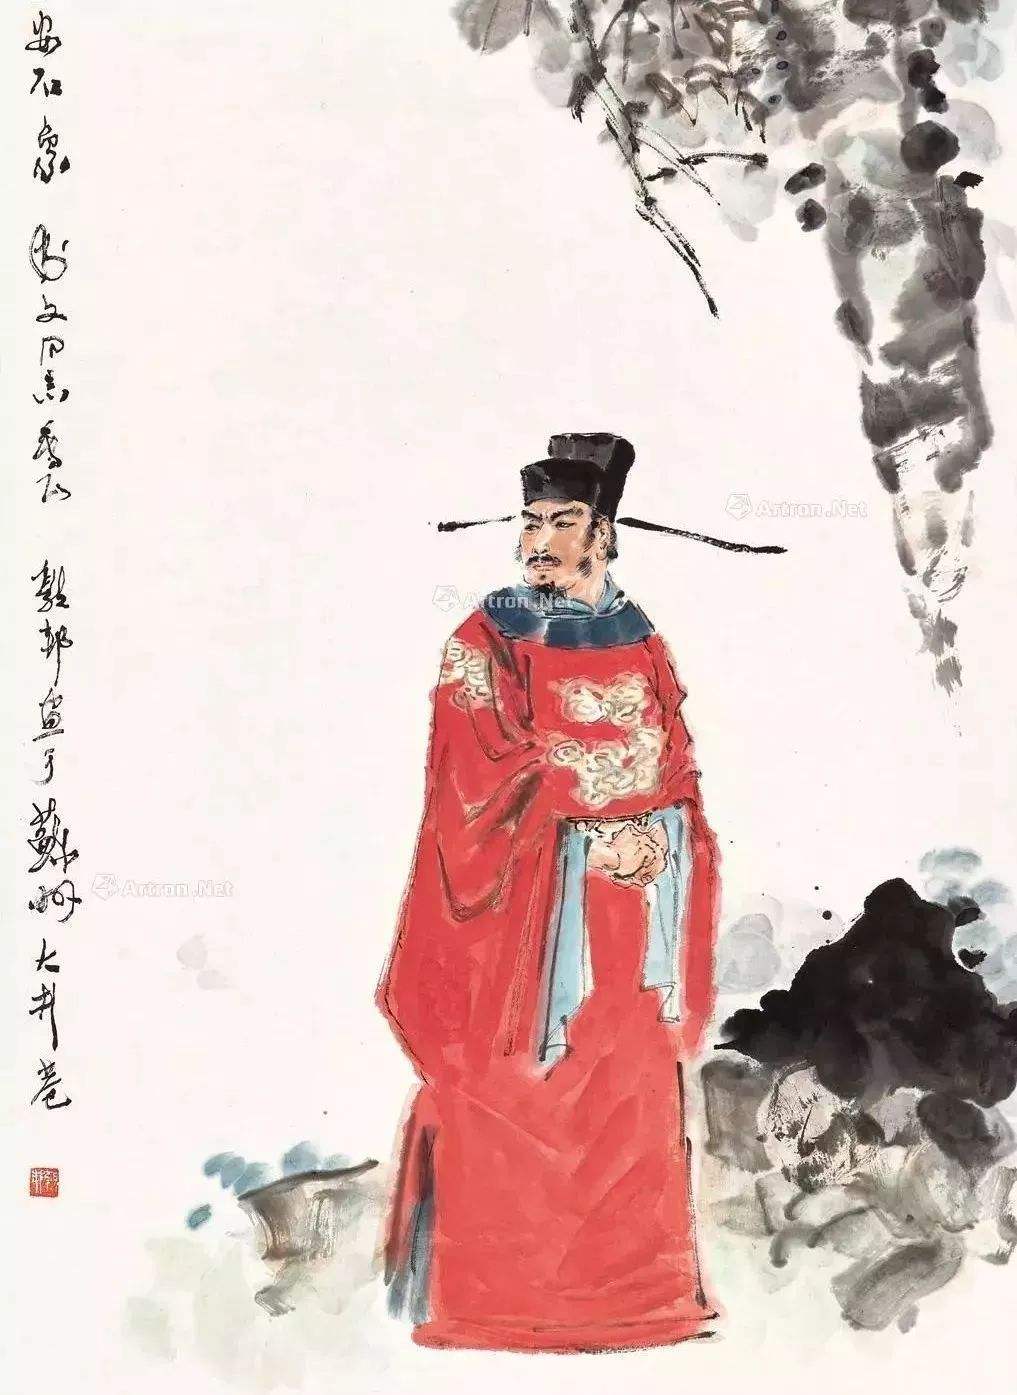 安石象
文同志 正
敦邦画于苏州大井巷
Artron.Net
Artron.Net
Artron.Net